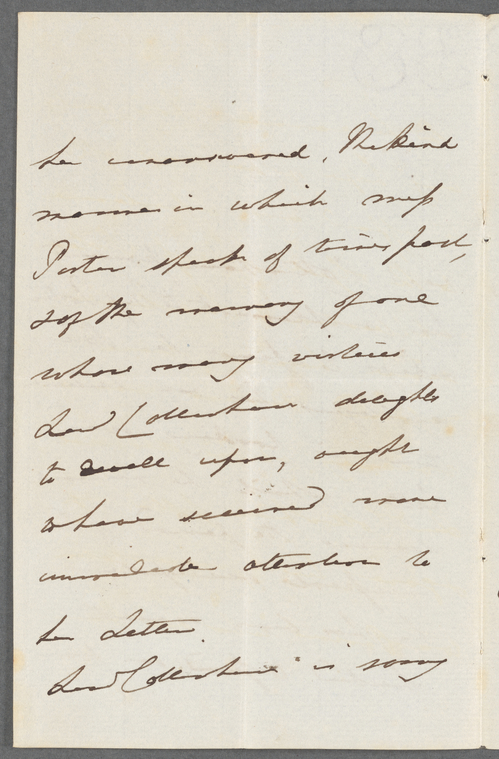 be unanswered, The kind
manner in which Miss
Porter speaks of times past,
& of the memory of one
whose many virtues
Lord delights
to dwell upon, ought
to have received more
immediate attention to
her Letter.
Lord is sorry